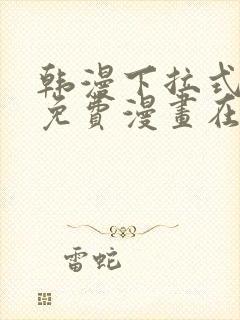 韩漫下拉式
免費漫畫在
雷蛇